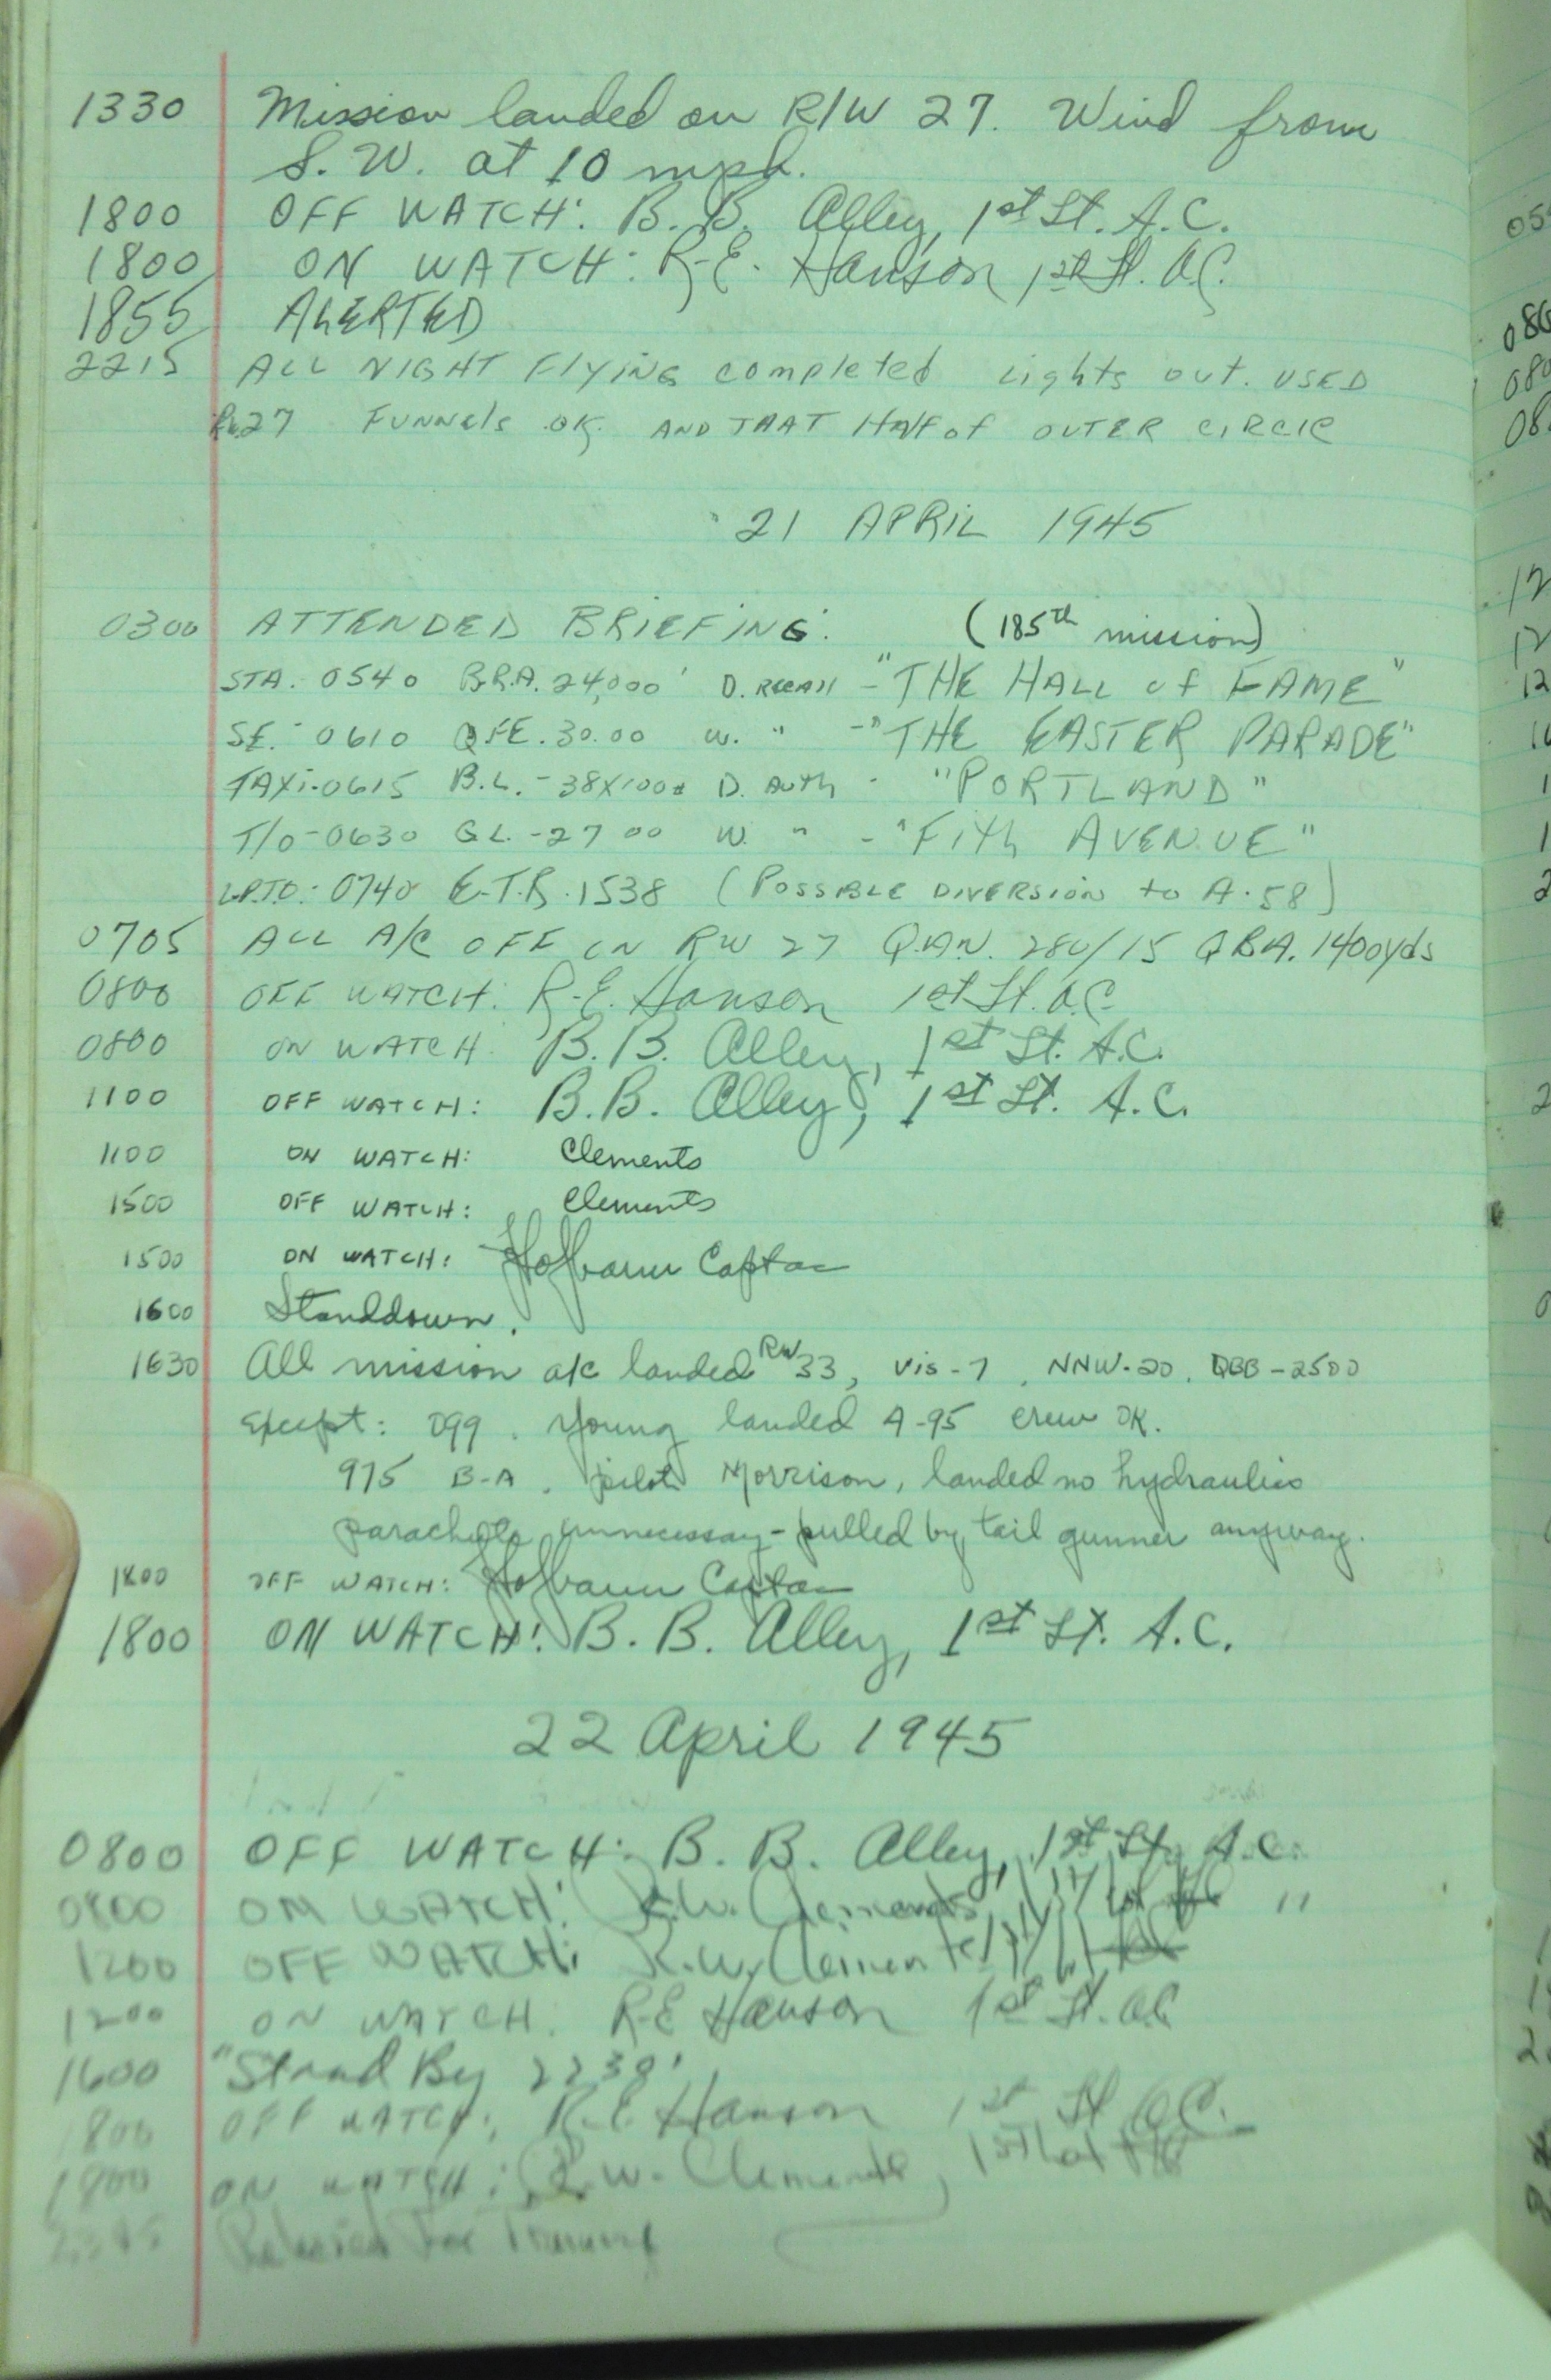 1330 Mission landed on R/W 27. Wind from
S.W. at 10 mph.
1800 OFF WATCH: B. B. Alley, 1st Lt. A.C.
1800 ON WATCH: R-E. Hanson 1st Lt. A.C.
1855 ALERTED
2215 ALL NIGHT FlYING completed Lights out. USED
RW27 FUNNels OK. AND THAT HAlf of OUTER CIRCle
21 APRIL 1945
0300 ATTENDED BRIEFING: (185th mission)
STA. 0540 B.R.A. 24,000' D. RECAll - "THE HALL of FAME"
S.E. - 0610 QFE. 30.00 W. " - "THE EASTER PARADE"
TAXi-0615 B.L. - 38X100# D. Auth - "PORTLAND"
T/O-0630 GL. -2700 W. " - "Fith AVENUE"
L.P.T.O.: 0740 E.T.R. 1538 (POSSIBLE DIVERSION to A-58)
0705 ALL A/C OFF ON RW 27 Q.A.N. 280/15 QBA. 1400yds
0800 OFF WATCH: R-E. Hanson 1st Lt. A.C.
0800 ON WATCH: B. B. Alley, 1st Lt. A.C.
1100 OFF WATCH: B. B. Alley, 1st Lt. A.C.
1100 ON WATCH: Clements
1500 OFF WATCH: Clements
1500 ON WATCH: Capt ac
1600 Standdown.
1630 All mission a/c landed RW 33, vis-7, NNW-20, QBB-2500
Except: 099. Young landed A-95 crew OK.
975 B-A. pilot Morrison, landed no hydraulics
parachute unnecessary - pulled by tail gunner anyway.
1800 OFF WATCH: Capt ac
1800 ON WATCH: B. B. Alley, 1st Lt. A.C.
22 April 1945
0800 OFF WATCH: B. B. Alley, 1st Lt. A.C.
0800 ON WATCH: R.W. Clements "
1200 OFF WATCH: R.W. Clements
1200 ON WATCH: R-E Hanson 1st Lt. A.C.
1600 "Stand By 2230'
1800 OFF WATCH: R.E. Hanson 1st Lt A.C.
1800 ON WATCH: R.W. Clements,
Released For Training